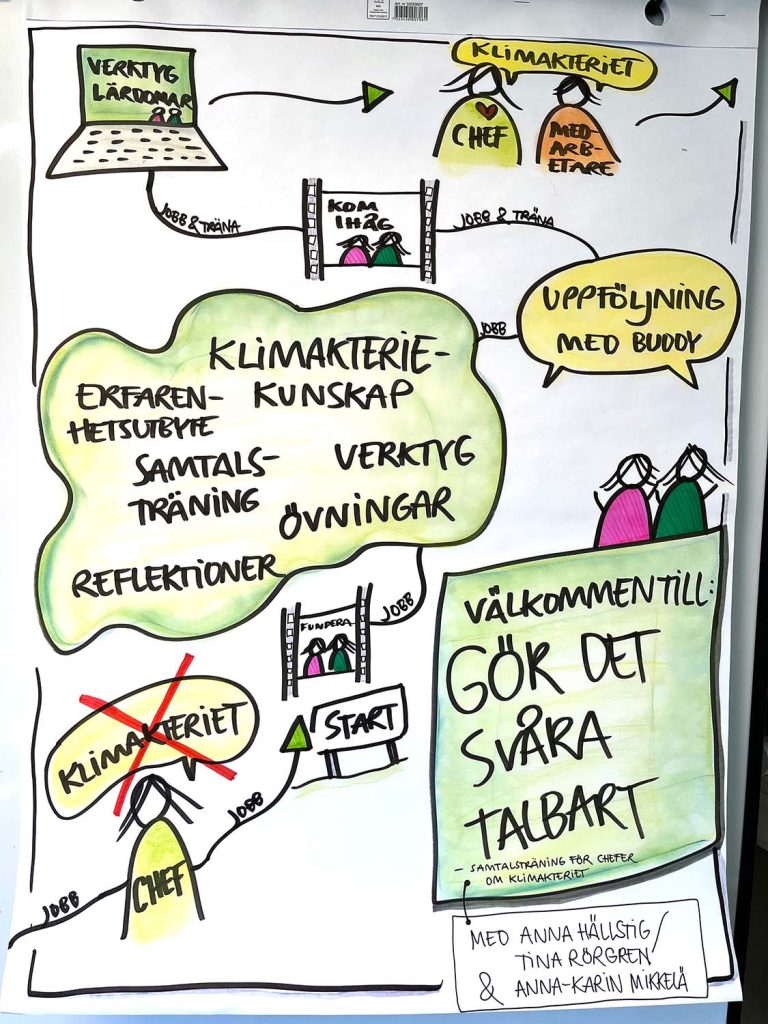 VERKTYG
LÄRDOMAR
KLIMAKTERIET
CHEF
MED-
ARB-
ETARE
JOBB & TRÄNA
KOM
IHÅG
JOBB & TRÄNA
UPPFÖLJNING
MED BUDDY
JOBB
KLIMAKTERIE-
KUNSKAP
ERFAREN-
HETSUTBYTE
SAMTALS-
TRÄNING
VERKTYG
ÖVNINGAR
REFLEKTIONER
JOBB
FUNDERA
START
KLIMAKTERIET
JOBB
CHEF
JOBB
VÄLKOMMEN TILL:
GÖR DET
SVÅRA
TALBART
- SAMTALSTRÄNING FÖR CHEFER
OM KLIMAKTERIET
MED ANNA HÄLLSTIG/
TINA RÖRGREN
& ANNA-KARIN MIKKELÄ